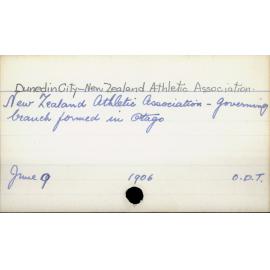 Dunedin City-New Zealand Athletic Association.
New Zealand Athletic Association - governing
branch formed in Otago
June 9 1906 O.D.T.